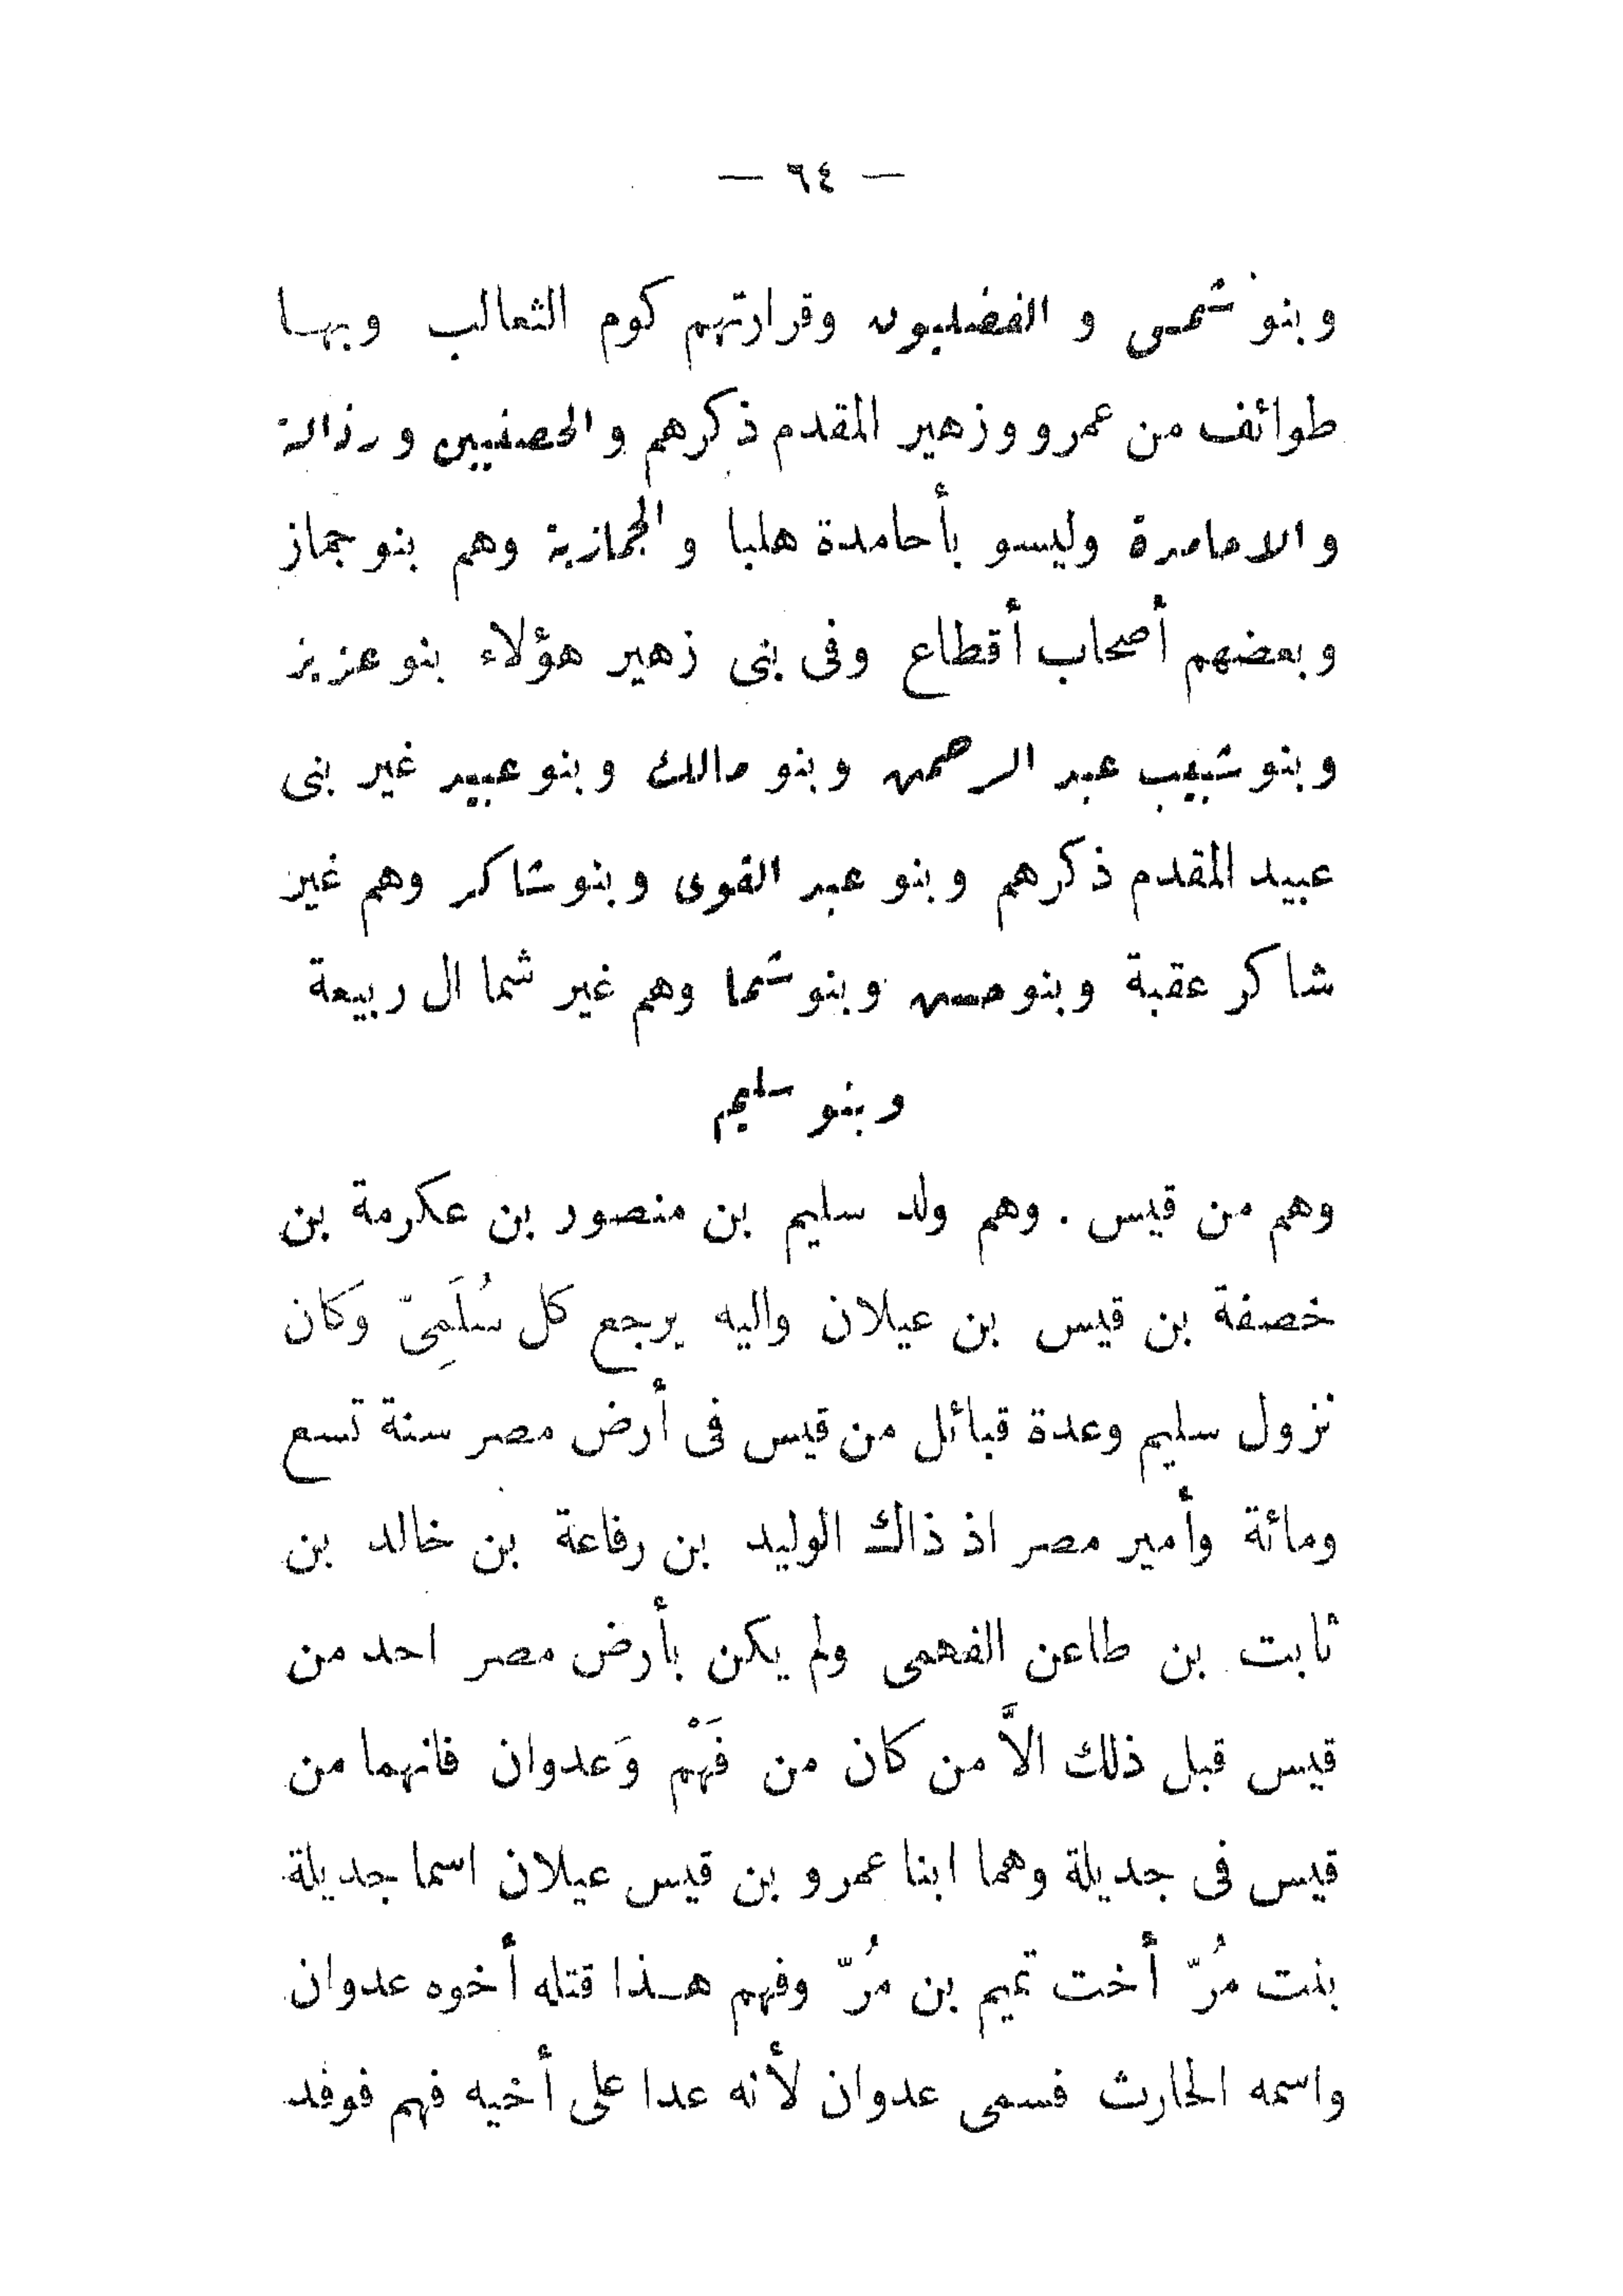 — ٦٤ —
وبنو شمس و الفضليون وقرارتهم كوم الثعالب وبها
طوائف من عمرو وزهير المقدم ذكرهم و الحصنيين و رذالة
و الاحامدة وليسو بأحامدة هلبا و الجمازية وهم بنو جماز
وبعضهم أصحاب أقطاع وفى بنى زهير هؤلاء بنو عزيز
وبنو شبيب عبد الرحمن وبنو مالك وبنو عبيد غير بنى
عبيد المقدم ذكرهم وبنو عبد القوى وبنو شاكر وهم غير
شاكر عقبة وبنو حسن وبنو شما وهم غير شما ال ربيعة
وبنو سليم
وهم من قيس . وهم ولد سليم بن منصور بن عكرمة بن
خصفة بن قيس بن عيلان واليه يرجع كل سُلَمِىّ وَكان
نزول سليم وعدة قبائل من قيس فى أرض مصر سنة تسع
ومائة وأمير مصر اذ ذاك الوليد بن رفاعة بن خالد بن
ثابت بن طاعن الفهمى ولم يكن بأرض مصر احد من
قيس قبل ذلك الاَّ من كان من فَهْم وَعدوان فانهما من
قيس فى جديلة وهما ابنا عمرو بن قيس عيلان اسما جديلة
بنت مُرّ أخت تميم بن مُرّ وفهم هـذا قتله أخوه عدوان
واسمه الحارث فسمى عدوان لأنه عدا على أخيه فهم فوفد